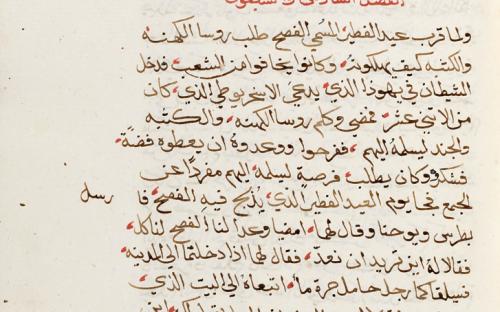 الفصل السادس والسبعون
ولما قرب عيد الفطير المسمي الفصح طلب روسا الكهنه
والكتبه كيف يهلكونه وكانوا يخافوا من الشعب فدخل
الشيطان في يهوذا الذي يدعي الاسخريوطي الذي كان
من الاثني عشر فمضي وكلم روسا الكهنه والكتبه
والجند ليسلمه اليهم ففرحوا ووعدوه ان يعطوه فضة
فشكر وكان يطلب فرصة ليسلمه اليهم مفردًا عن
الجمع فجا يوم العيد الفطير الذي يذبح فيه الفصح فا
رسل
بطرس ويوحنا وقال لهما امضيا وعدا لنا الفصح لناكل
فقالا له اين تريد ان نعد فقال لهما اذا دخلتما الي المدينه
فسيلقاكما رجل حامل جرة ما اتبعاه الي البيت الذي